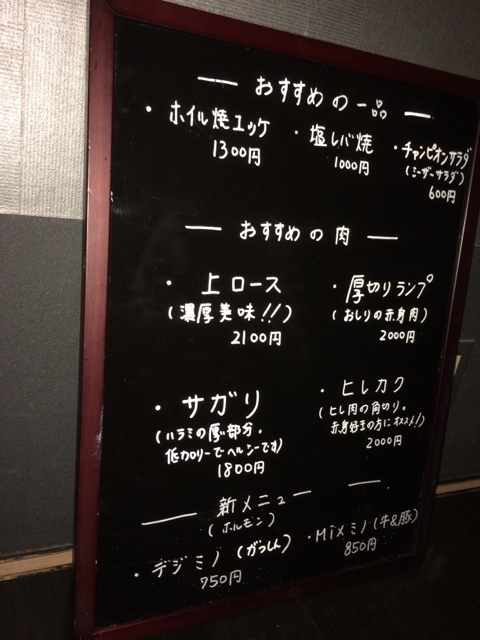 おすすめの一品
・ホイル焼ユッケ
1300円
・塩レバ焼
1000円
・チャンピオンサラダ
(シーザーサラダ)
600円
おすすめの肉
・上ロース
(濃厚美味!!)
2100円
・厚切りランプ
(おしりの赤身肉)
2000円
・サガリ
(ハラミの厚い部分。
低カロリーでヘルシーです)
1800円
・ヒレカク
(ヒレ肉の角切り。
赤身好きの方にオススメ!)
2000円
新メニュー
(ホルモン)
・デジミノ(がっしん)
750円
・MIXミノ(牛&豚)
850円